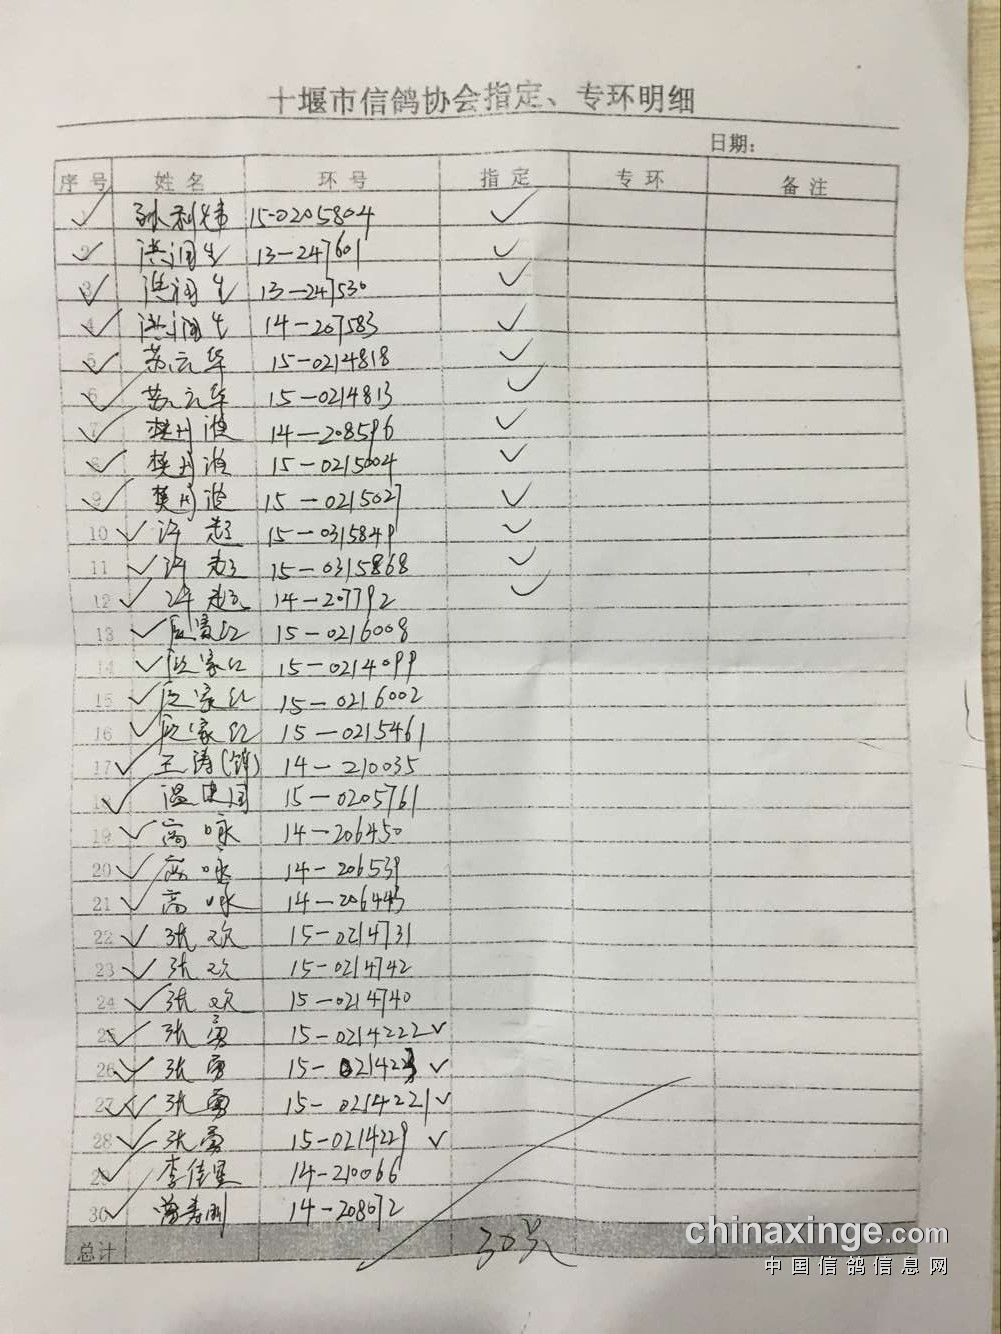 十堰市信鸽协会指定、专环明细
日期：
序号 姓名 环号 指定 专环 备注
✓ 孙利炜 15-0205804 ✓
2 ✓ 洪润生 13-247601 ✓
3 ✓ 洪润生 13-247530 ✓
4 ✓ 洪润生 14-207583 ✓
5 ✓ 苏云华 15-0214818 ✓
6 ✓ 苏云华 15-0214813 ✓
7 ✓ 14-208596 ✓
8 ✓ 15-0215004 ✓
9 ✓ 15-0215027 ✓
10 ✓ 许超 15-0315849 ✓
11 ✓ 许超 15-0315868 ✓
12 ✓ 许超 14-207792 ✓
13 ✓ 15-0216008
14 ✓ 15-0214099
15 ✓ 15-0216002
16 ✓ 15-0215461
17 ✓ 王涛 14-210035
✓ 温建国 15-0205761
19 ✓ 高咏 14-206450
20 ✓ 高咏 14-206539
21 ✓ 高咏 14-206443
22 ✓ 张欢 15-0214731
23 ✓ 张欢 15-0214742
24 ✓ 张欢 15-0214740
25 ✓ 张勇 15-0214222 ✓
26 ✓ 张勇 15-0214223 ✓
27 ✓ 张勇 15-0214221 ✓
28 ✓ 张勇 15-0214229 ✓
29 ✓ 李佳星 14-210066
30 ✓ 14-208072
总计 30只
chinaxinge.com
中国信鸽信息网